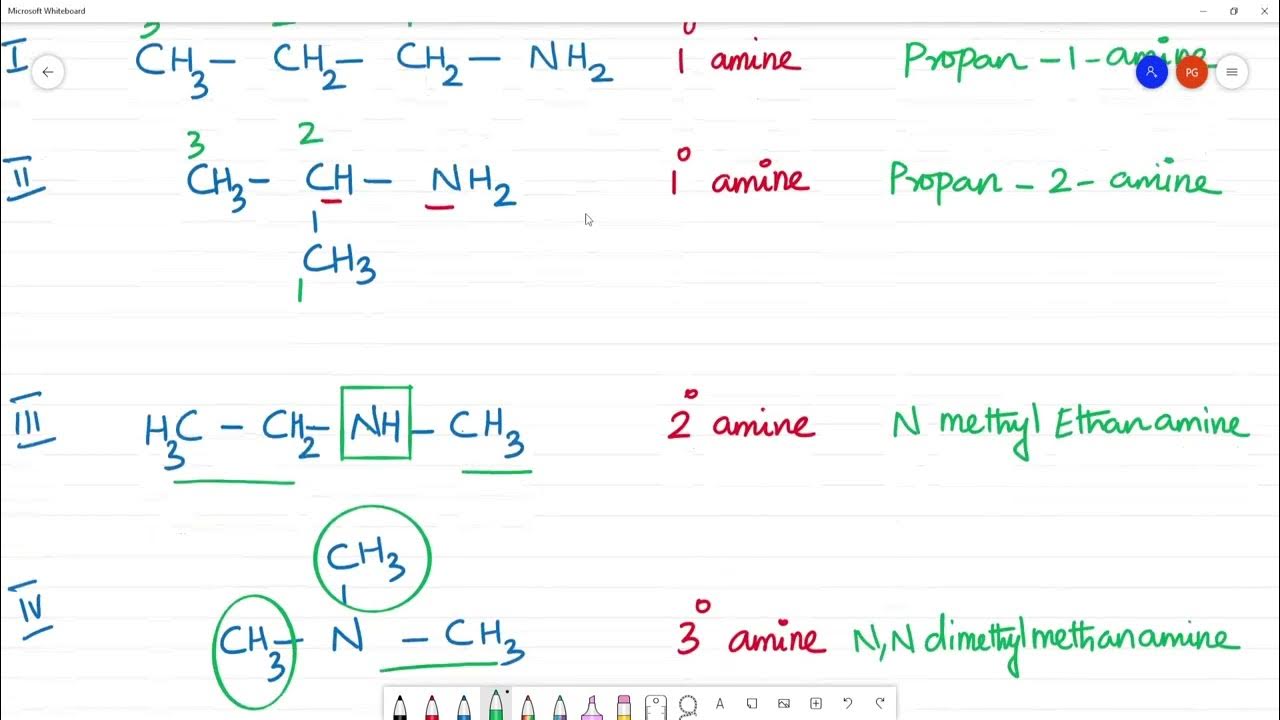 Microsoft Whiteboard
I CH3 – CH2 – CH2 – NH2 1° amine Propan – 1 – amine
PG
3 2
II CH3 – CH – NH2 1° amine Propan – 2 – amine
CH3
1
III H3C – CH2 – NH – CH3 2° amine N methyl Ethanamine
CH3
IV CH3 – N – CH3 3° amine N,N dimethylmethanamine
A